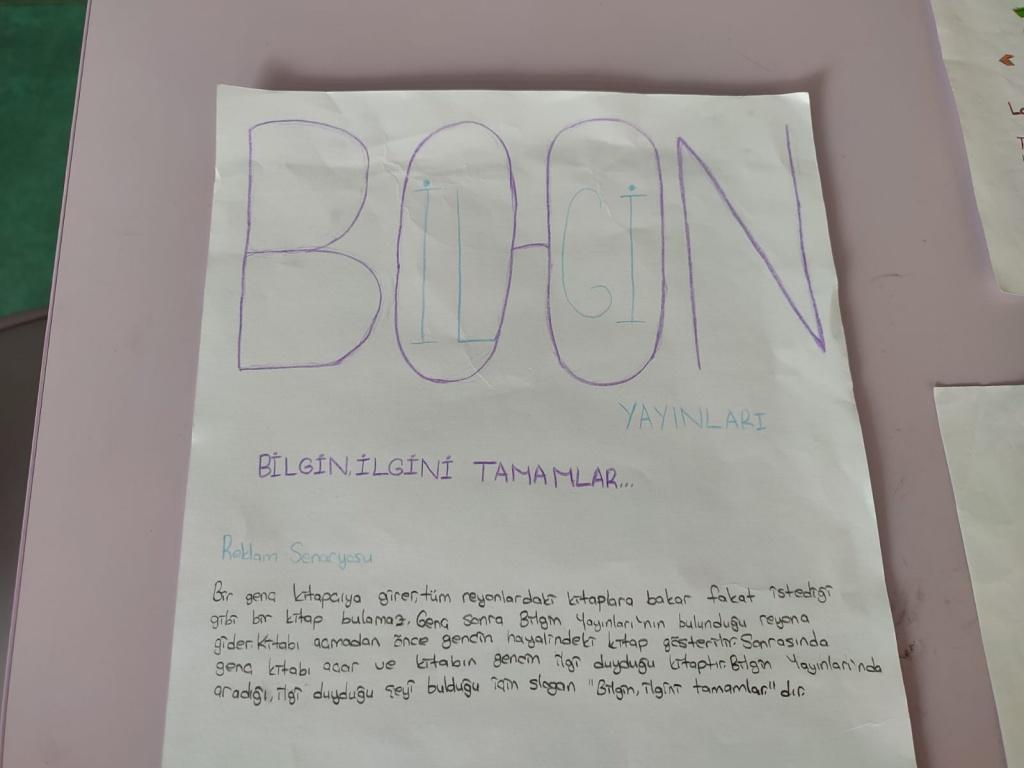 BOON
İLGİ
YAYINLARI
BİLGİN, İLGİNİ TAMAMLAR...
Reklam Senaryosu
Bir genç kitapçıya girer, tüm reyonlardaki kitaplara bakar fakat istediği
gibi bir kitap bulamaz. Genç sonra Bilgin Yayınları'nın bulunduğu reyona
gider. Kitabı açmadan önce gencin hayalindeki kitap gösterilir. Sonrasında
genç kitabı açar ve kitabın gencin ilgi duyduğu kitaptır. Bilgin Yayınları'nda
aradığı, ilgi duyduğu şeyi bulduğu için slogan "Bilgin, ilgini tamamlar" dır.